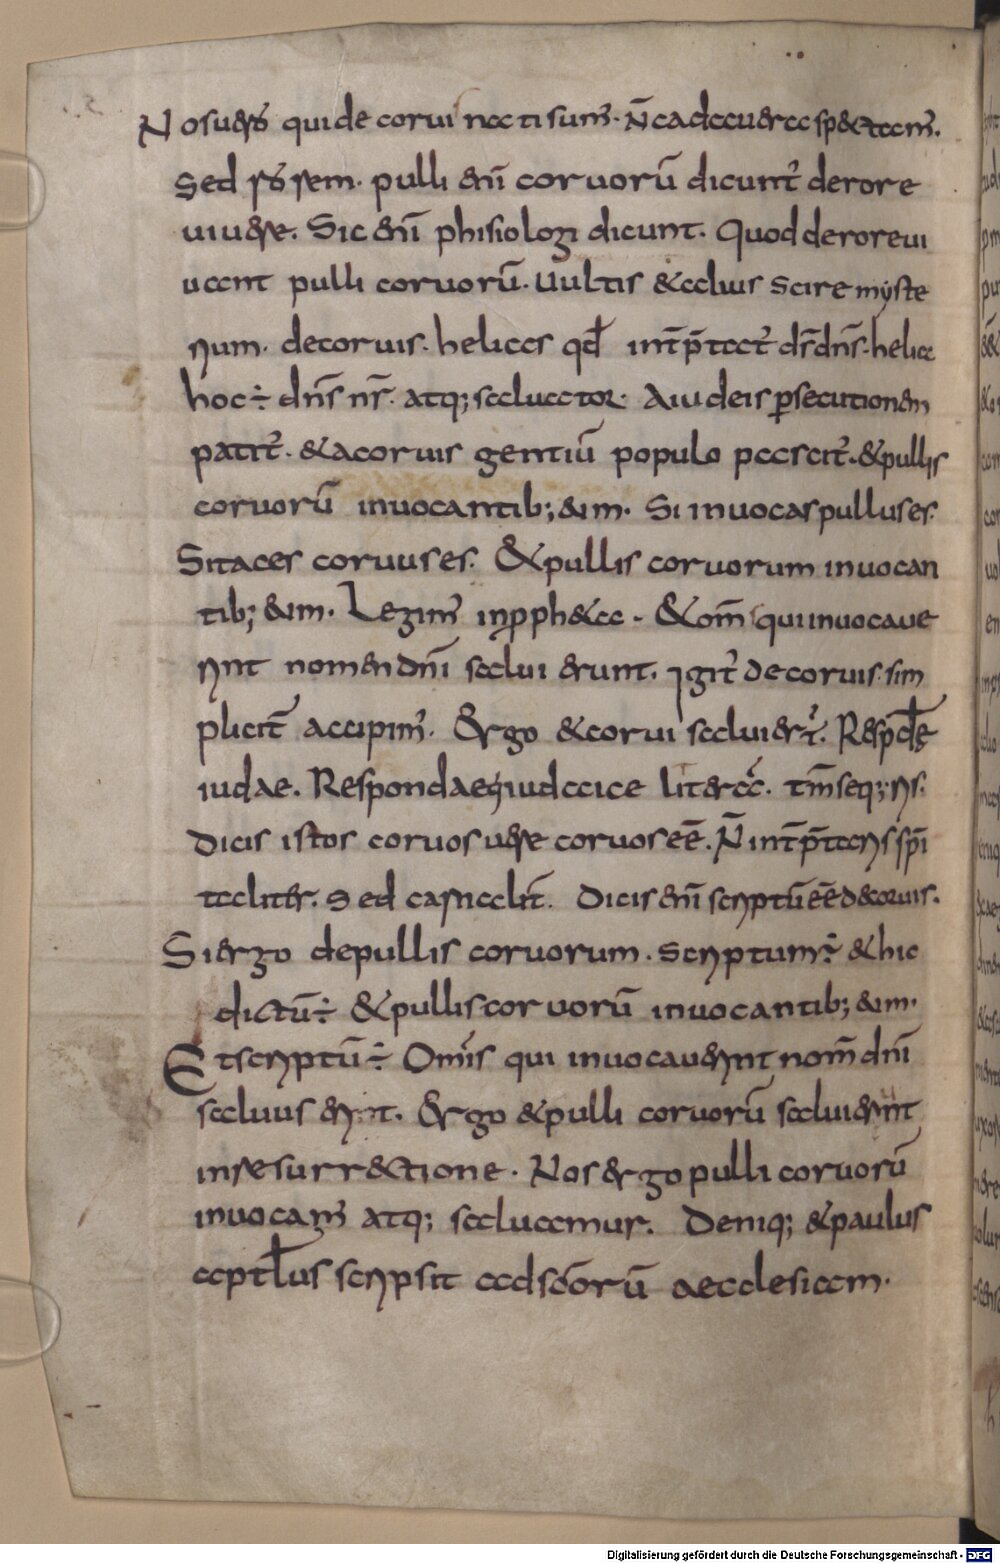 Nos uero qui de corui nati sum'. N̄ ea d cauerca spectam'.
Sed rorem. pulli eni coruorū dicunt' de rore
uiuere. Sic enī phisiologi dicunt. Quod de rore ui
uant pulli coruorū. Uultis & alius scire myste
rium. de coruis. helias qd̄ int̄p̄tat' dr̄ dn̄s. helia
hoc ÷ dn̄s nr̄. atq; saluator. A iudeis persecutionem
patit'. & a coruis gentiū populo pascit'. & pullis
coruorū inuocantib; eum. Si inuocas pullus es.
Si taces coruus es. Et pullis coruorum inuocan
tib; eum. Legim' in ppheta - Et om̄ qui inuocaue
rint nomen dnī salui erunt. Igit' de coruis. sim
plicit̄ accipim'. Ergo & corui salui er̄t. Respd̄e
iudae. Responda equi iudaice literā. tm̄ seq;ris.
Dicis istos coruos uere coruos eē. N̄ int̄p̄taris spi
talit̄. Sed carnalit̄. Dicis enī scriptū eē de coruis.
Si ergo de pullis coruorum. scriptum ÷ & hic
dictū ÷ & pullis coruorū inuocantib; eum.
Et scriptū ÷ Om̄is qui inuocauerint nom̄ dnī
saluus erit. Ergo & pulli coruorū salui erint
in resurrectione. Nos ergo pulli coruorū
inuocam' atq; saluamur. Deniq; & paulus
aptlus scripsit ad scōrū aecclesiam.
Digitalisierung gefördert durch die Deutsche Forschungsgemeinschaft - DFG